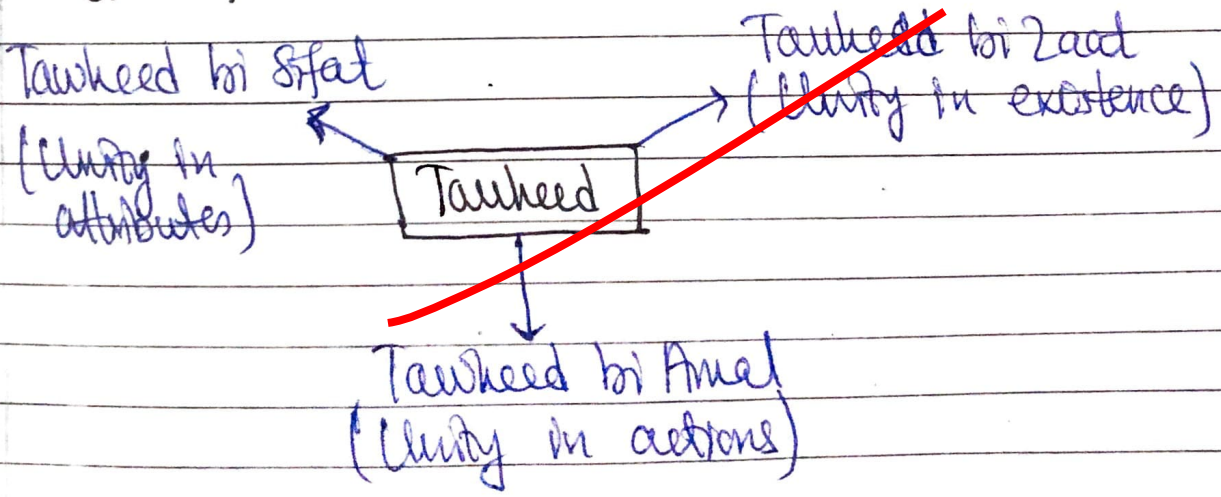 Tawheed bi Sifat
(Unity in
attributes)
Tauheed bi Zaat
(Unity in existence)
Tauheed
Tawheed bi Amal
(Unity in actions)